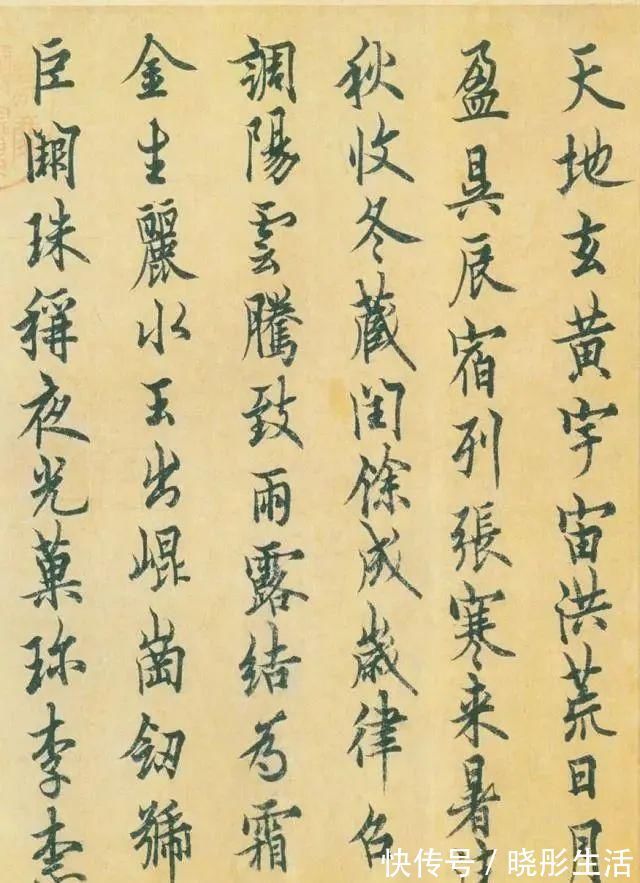 天地玄黃宇宙洪荒日月
盈昃辰宿列張寒来暑
秋收冬藏閏餘成歲律呂
調陽雲騰致雨露結為霜
金生麗水玉出崐崗劒號
巨闕珠稱夜光菓珎李柰
快传号/晓彤生活